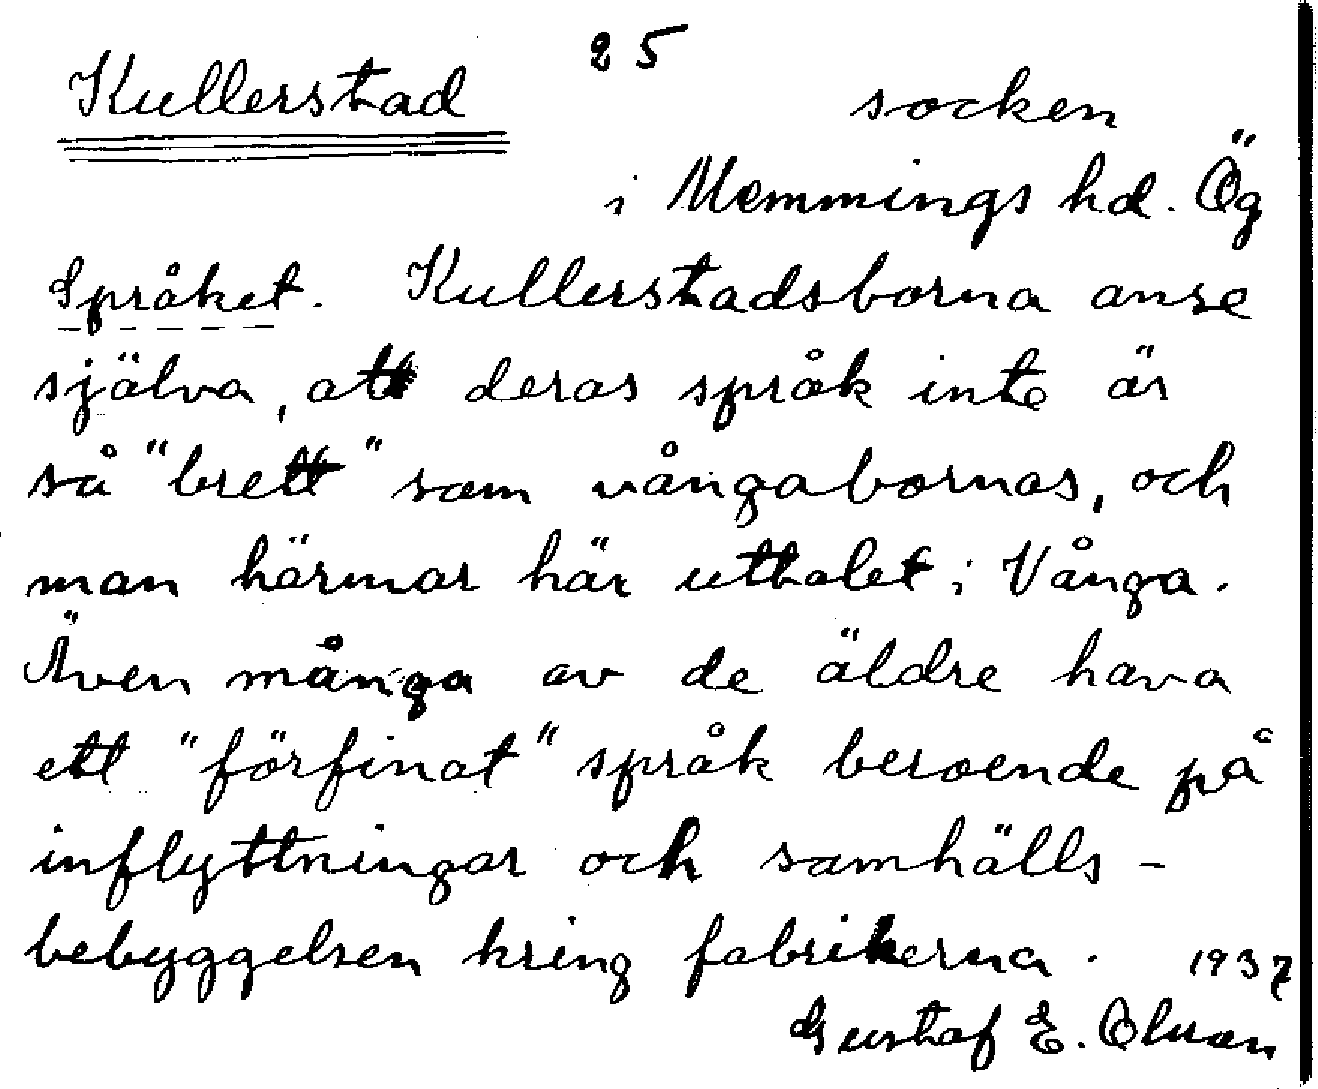 25
Kullerstad socken
i Memmings hd. Ög
Språket. Kullerstadsborna anse
själva, att deras språk inte är
så "brett" som vångabornas, och
man härmar här uttalet i Vånga.
Även många av de äldre hava
ett "förfinat" språk beroende på
inflyttningar och samhälls-
bebyggelsen kring fabrikerna. 1937
Gustaf E. Olsson